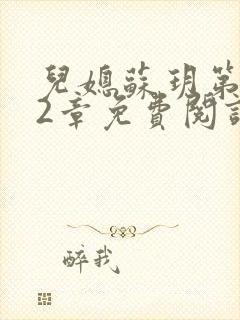 兒媳蘇玥第
2章免費閱讀
醉我